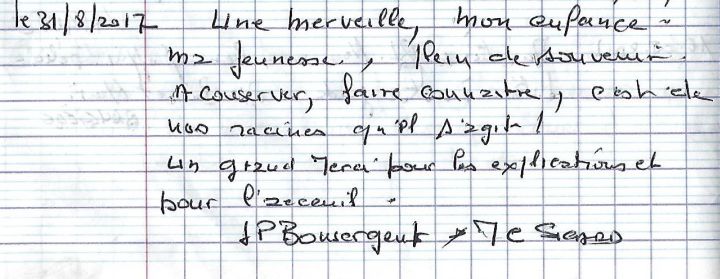 le 31/8/2017 Une merveille, mon enfance -
ma jeunesse., Plein de souvenir.
A conserver, faire connaitre, c'est de
nos racines qu'il s'agit !
un grand merci pour les explications et
pour l'acceuil -
JP Bousergent